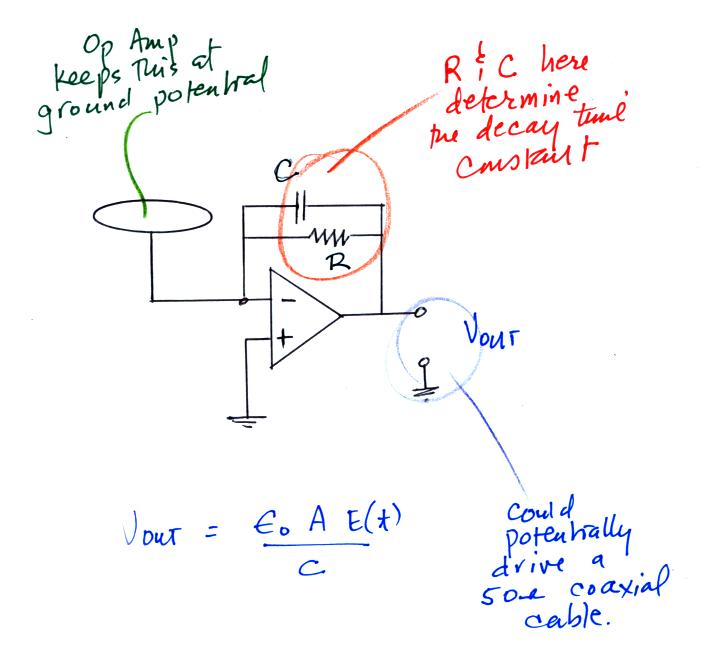 Op Amp
keeps this at
ground potential
R & C here
determine
the decay time
constant
C
R
-
+
VOUT
VOUT = ϵ₀ A E(t)
C
could
potentially
drive a
50Ω coaxial
cable.